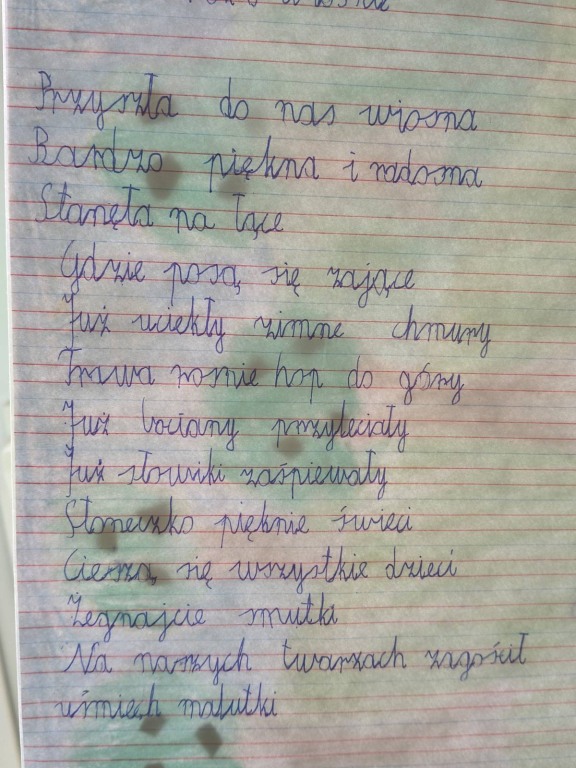 Przyszła do nas wiosna
Bardzo piękna i radosna
Stanęła na łące
Gdzie posą się zające
Już uciekły zimne chmury
Trawa rośnie hop do góry
Już bociany przyleciały
Już słowiki zaśpiewały
Słoneczko pięknie świeci
Cieszą się wszystkie dzieci
Żegnajcie smutki
Na naszych twarzach zagościł
uśmiech malutki